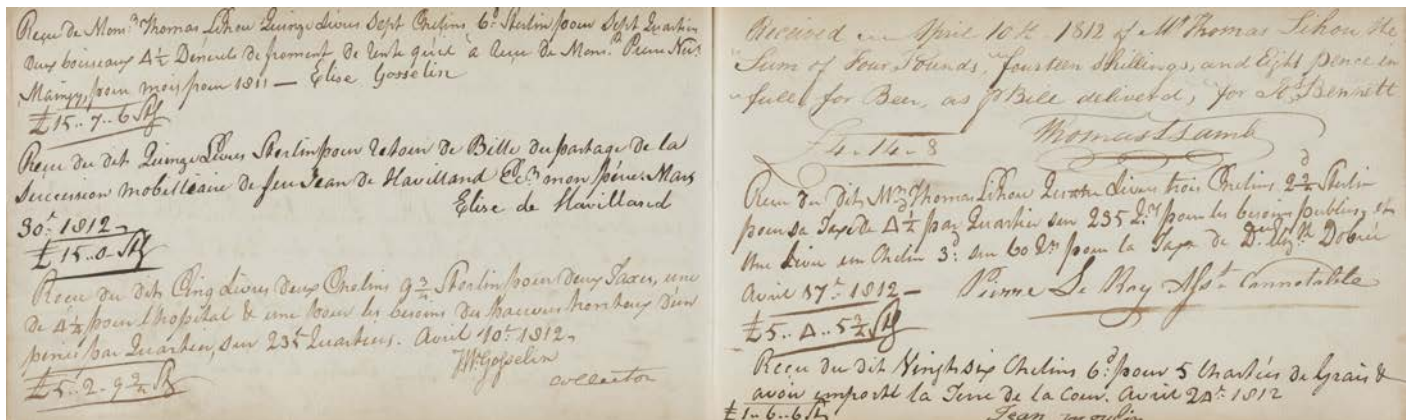 Reçu de Monsr Thomas Lihou Quinze Livres Sept Chelins 6d Sterlin pour Sept Quartiers
deux boisseaux 4½ Deneuls de froment de rente qu'il à de Monsr Pierre
Maingy, pour mois pour 1811 — Elise Gosselin
£15..7..6 Stg
Reçu du dit Quinze Livres Sterlin pour retour de Bille du partage de la
succession mobilliaire de feu Jean de Havilland Ecr mon père. Mars
30e 1812
Elise de Havilland
£15..0 Stg
Reçu du dit Cinq Livres deux Chelins 9¾ Sterlin pour deux Taxes, une
de 4½ pour l'hopital & une pour les besoins des Pauvres honteux d'un
penis par Quartier, sur 235 Quartiers. Avril 10e 1812
Gosselin
collector
£5..2..9¾ Stg
Received in April 10th 1812 of Mr Thomas Lihou the
Sum of Four Pounds, fourteen Shillings, and Eight pence in
full for Beer, as pr Bill delivered, for Bennett
£4-14-8
Thomas Lamb
Reçu du dit Mr Thomas Lihou Quatre Livres trois Chelins 2½d Sterlin
pour sa Taxe de 4½ par Quartier sur 235 Qrs pour les besoins publics, et
Une Livre un Chelin 3d sur 60 Qrs pour la Taxe de Dobrée
Avril 17e 1812 — Pierre Le Ray Asst Connetable
£5..4..5¾ Stg
Reçu du dit Vingt six Chelins 6d pour 5 Chartées de Grais &
avoir emporté la Terre de la Cour. Avril 24e 1812
£1..6..6 Stg
Jean moulin